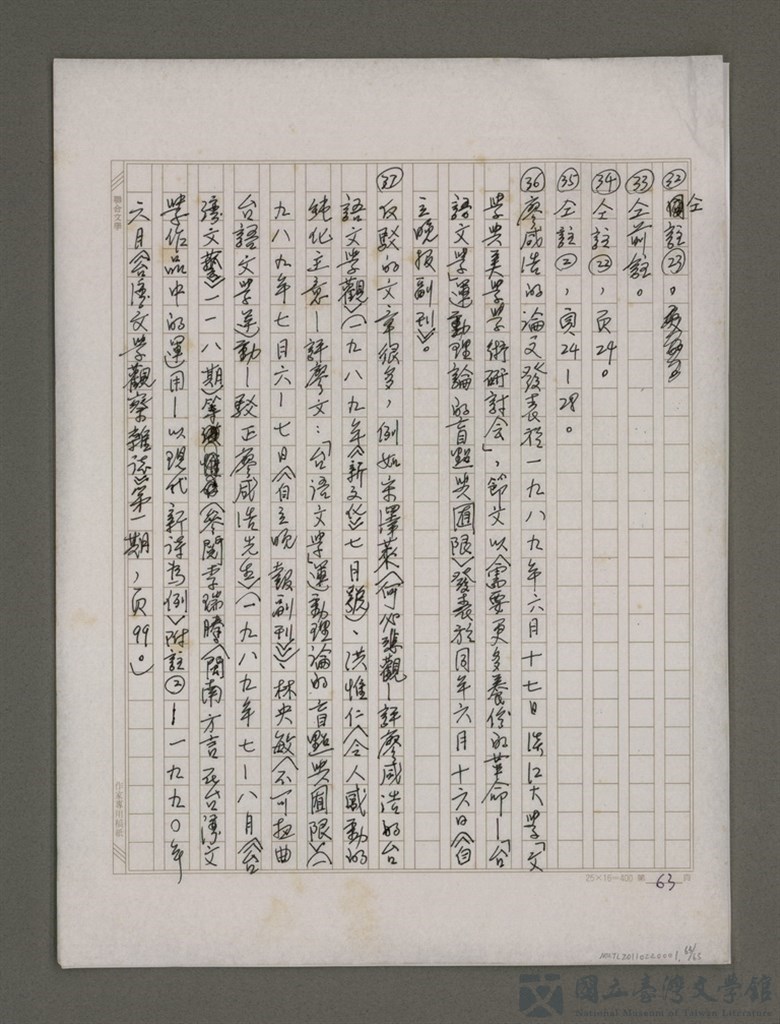 ㉜仝註㉓。
㉝仝前註。
㉞仝註㉒，頁24。
㉟仝註②，頁24—28。
㊱廖咸浩的論文發表於一九八九年六月十七日淡江大學「文
學與美學學術研討會」，節文以〈需要更多養份的革命—「台
語文學」運動理論的盲點與囿限〉發表於同年六月十六日《自
立晚報副刊》。
㊲反駁的文章很多，例如宋澤萊〈何必悲觀—評廖咸浩的台
語文學觀〉（一九八九年《新文化》七月號）、洪惟仁〈令人感動的
純化主意—評廖文：「台語文學」運動理論的盲點與囿限〉（一
九八九年七月六—七日《自立晚報副刊》）、林央敏〈不可扭曲
台語文學運動—駁正廖咸浩先生〉（一九八九年七—八月《台
灣文藝》一一八期）等（參閱李瑞騰〈閩南方言在台灣文
學作品中的運用—以現代新詩為例〉附註②—一九九〇年
六月《台灣文學觀察雜誌》第一期，頁99。）
聯合文學
作家專用稿紙
25×16=400 第 63 頁
NMTL20110220001
國立臺灣文學館
National Museum of Taiwan Literature